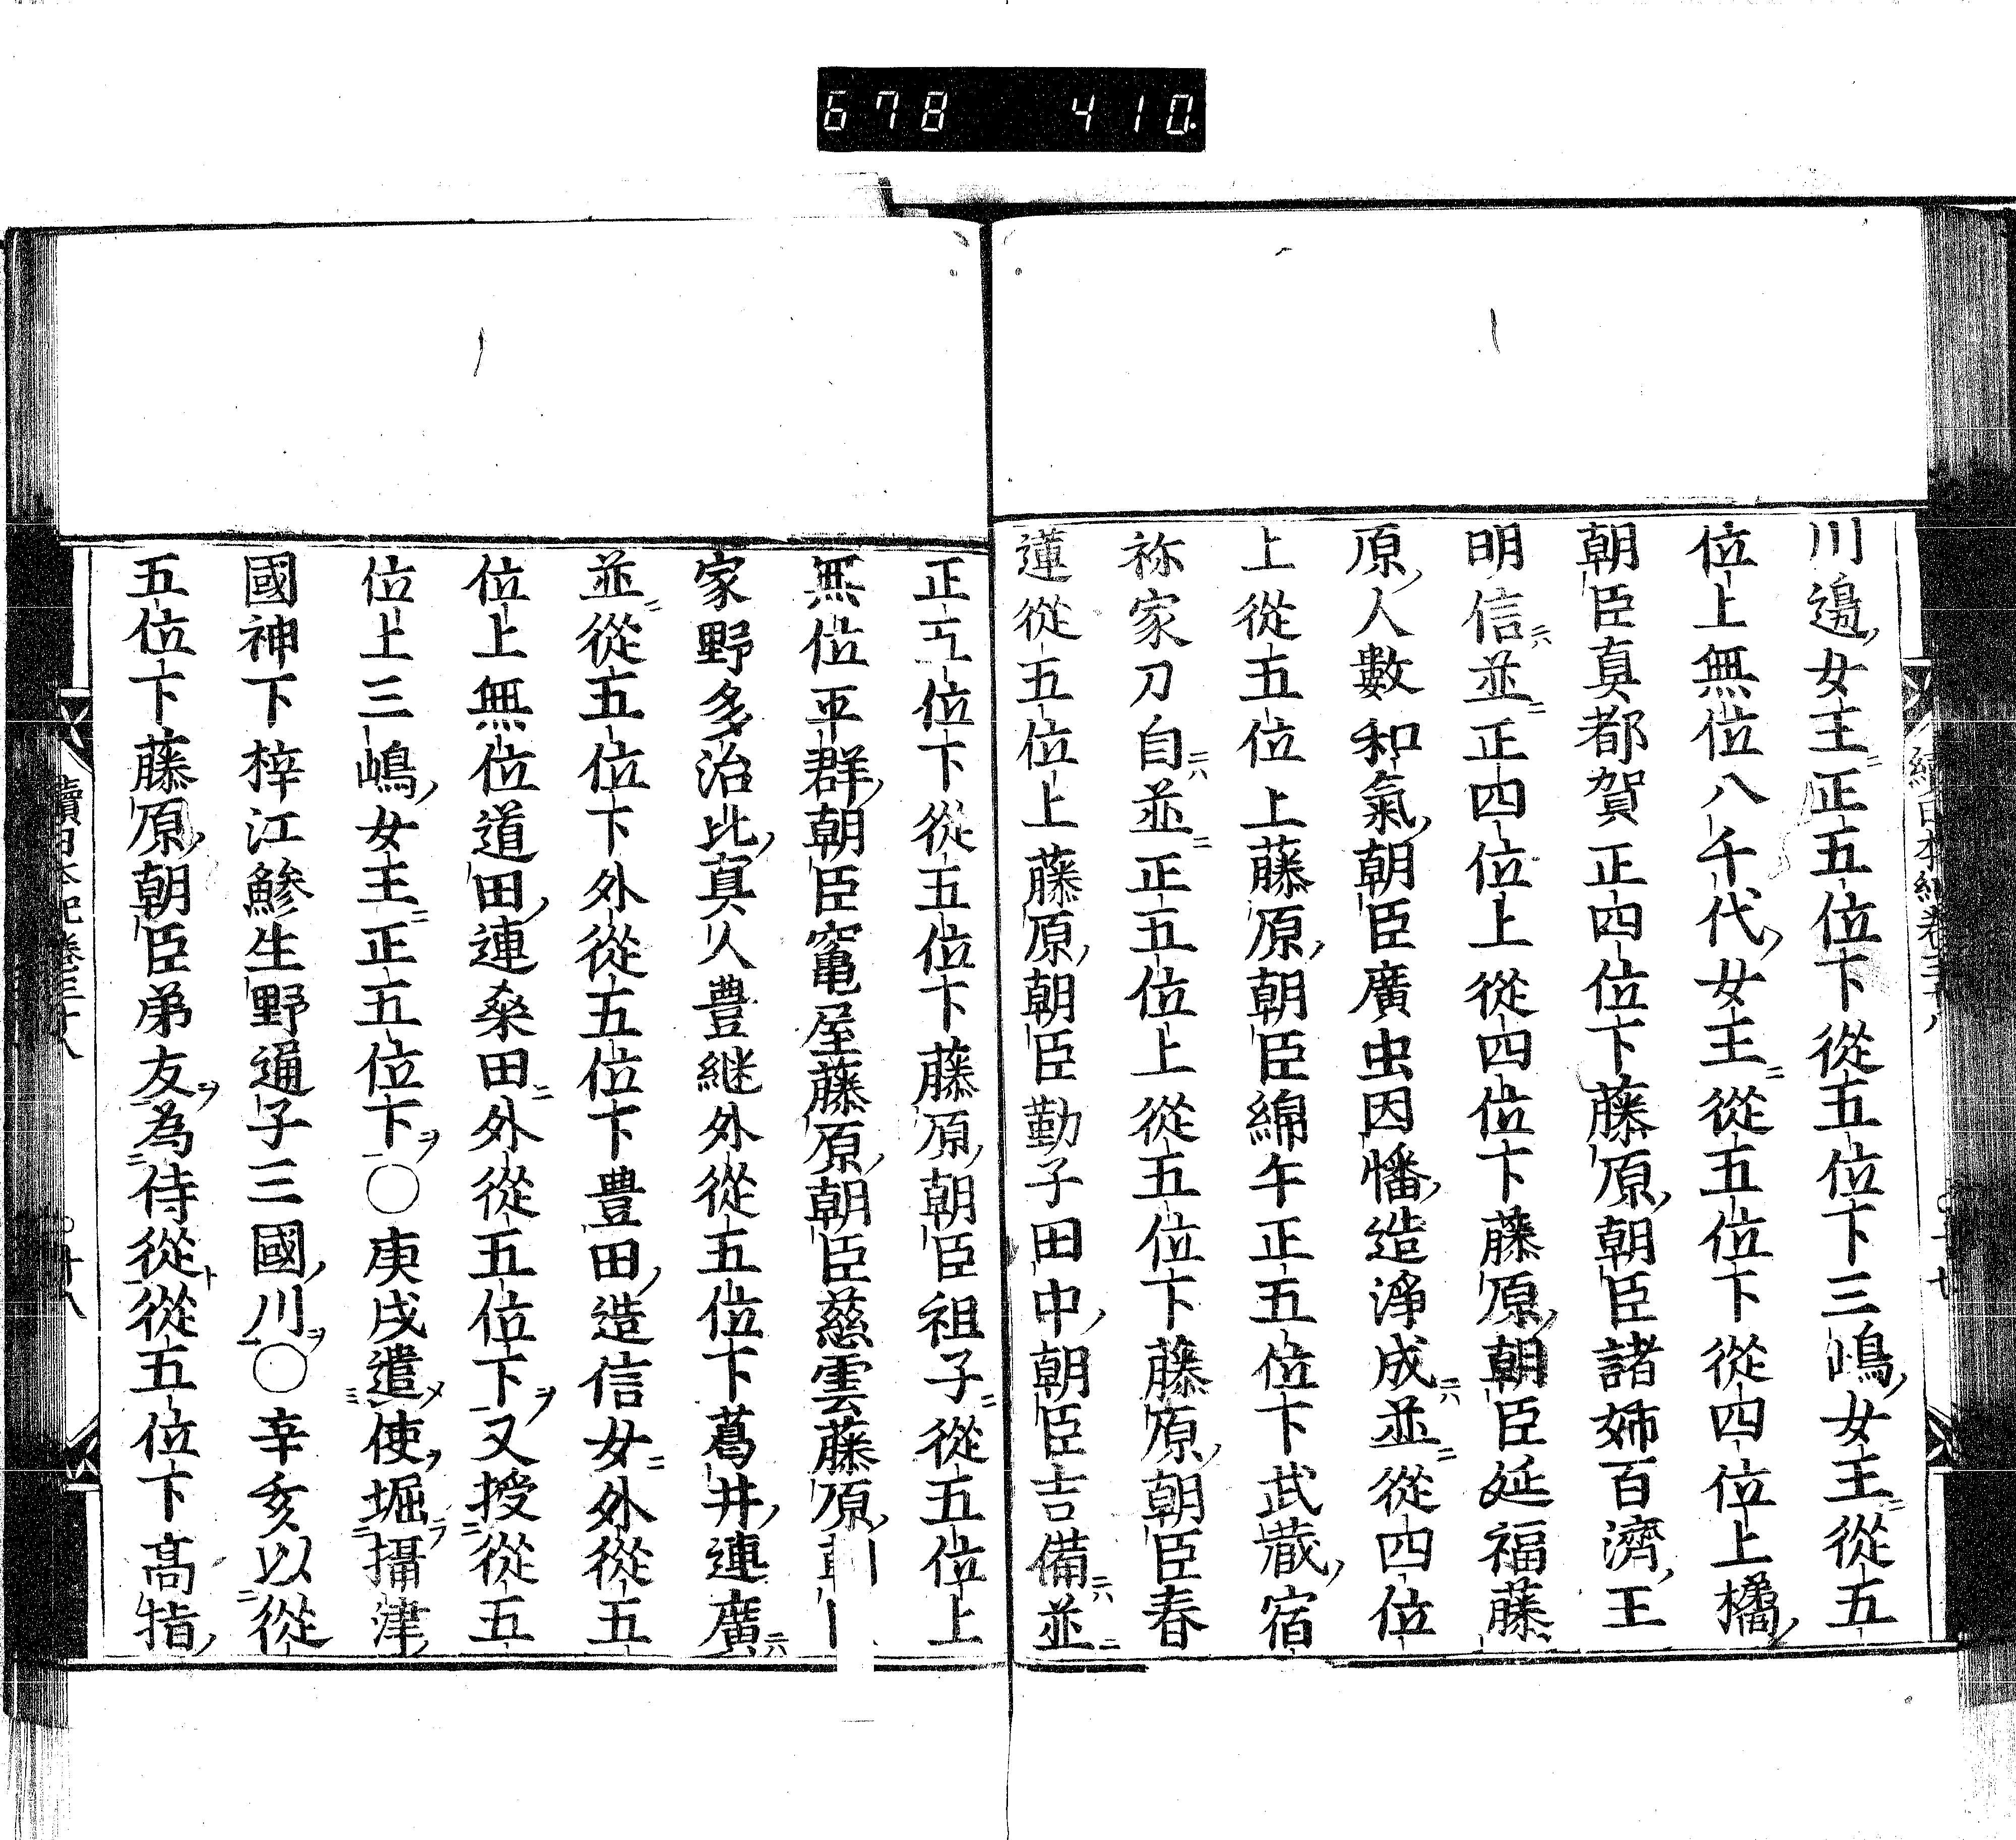 678 410.
川邊女王正五位下從五位下三嶋女王從五
位上無位八千代女王從五位下從四位上橘
朝臣真都賀正四位下藤原朝臣諸姉百濟王
明信並正四位上從四位下藤原朝臣延福藤
原人數和氣朝臣廣虫因幡造淨成並從四位
上從五位上藤原朝臣綿午正五位下武藏宿
祢家刀自並正五位上從五位下藤原朝臣春
蓮從五位上藤原朝臣勤子田中朝臣吉備並
正五位下從五位下藤原朝臣祖子從五位上
無位平群朝臣竃屋藤原朝臣慈雲藤原
家野多治比真人豊継外從五位下葛井連廣
並從五位下外從五位下豊田造信女外從五
位上無位道田連桒田外從五位下又授從五
位上三嶋女王正五位下〇庚戌遣使堀攝津
國神下梓江鯵生野通子三國川〇辛亥以從
五位下藤原朝臣弟友為侍從從五位下高